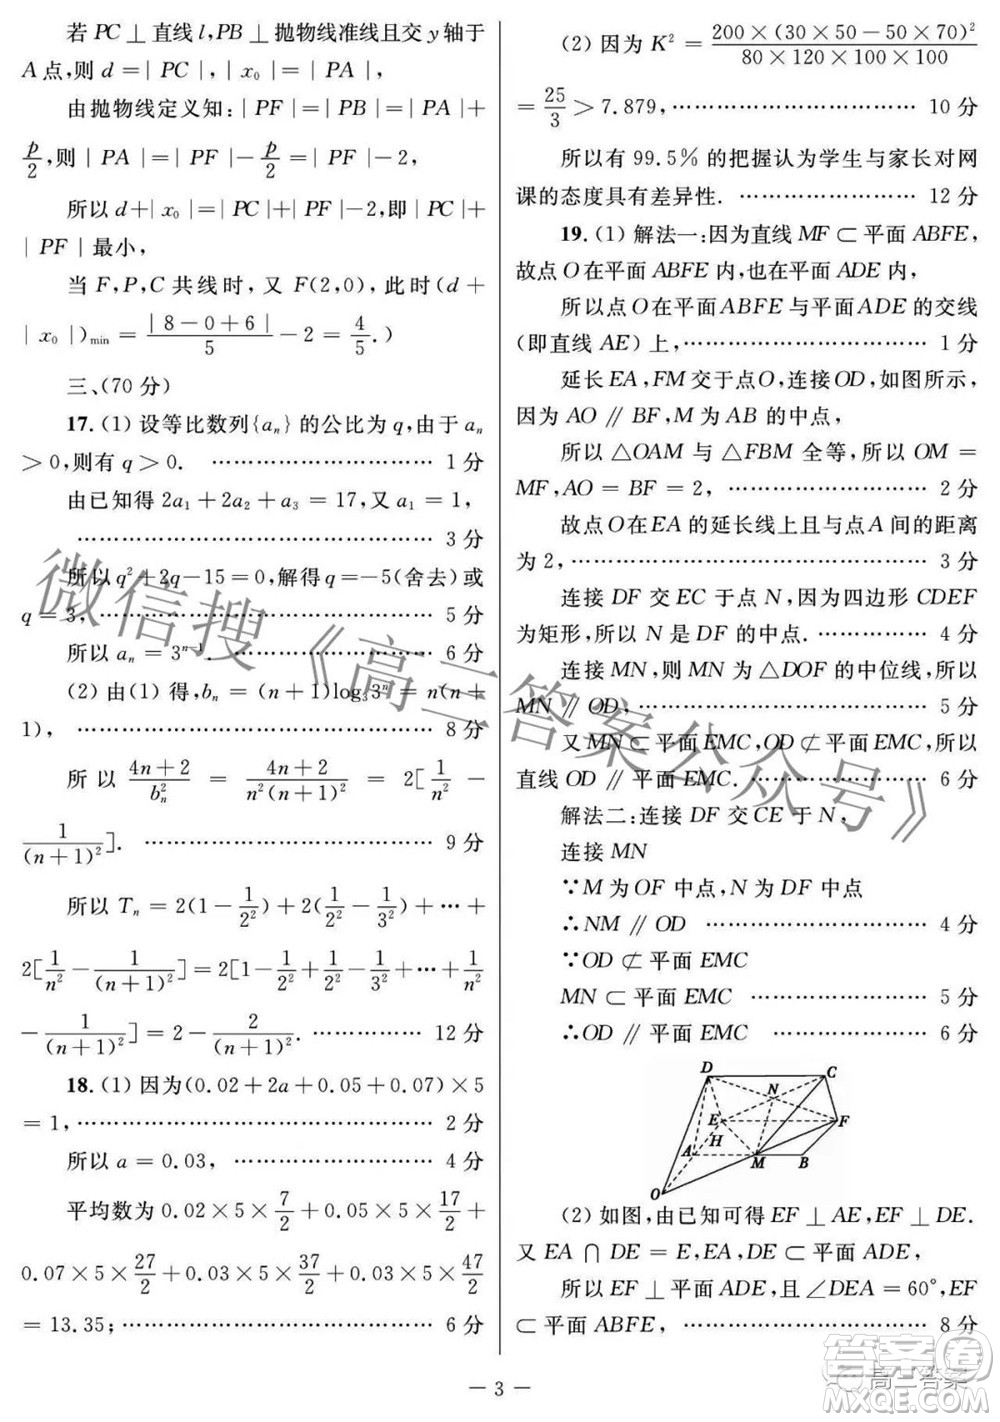 若 PC ⊥ 直线 l, PB ⊥ 抛物线准线且交 y 轴于
A 点, 则 d = | PC |, | x₀ | = | PA |,
由抛物线定义知: | PF | = | PB | = | PA | +
p/2, 则 | PA | = | PF | − p/2 = | PF | − 2,
所以 d + | x₀ | = | PC | + | PF | − 2, 即 | PC | +
| PF | 最小,
当 F, P, C 共线时, 又 F(2,0), 此时 (d +
| x₀ |)min = | 8 − 0 + 6 |/5 − 2 = 4/5.)
三、(70 分)
17. (1) 设等比数列{aₙ} 的公比为 q, 由于 aₙ
> 0, 则有 q > 0. …………………………… 1 分
由已知得 2a₁ + 2a₂ + a₃ = 17, 又 a₁ = 1,
…………………………… 3 分
所以 q² + 2q − 15 = 0, 解得 q = −5(舍去) 或
q = 3, …………………………… 5 分
所以 aₙ = 3ⁿ⁻¹. …………………………… 6 分
(2) 由(1) 得, bₙ = (n + 1)log₃3ⁿ = n(n +
1), …………………………… 8 分
所以 (4n + 2)/bₙ² = (4n + 2)/(n²(n + 1)²) = 2[1/n² −
1/(n + 1)²]. …………………………… 9 分
所以 Tₙ = 2(1 − 1/2²) + 2(1/2² − 1/3²) + ⋯ +
2[1/n² − 1/(n + 1)²] = 2[1 − 1/2² + 1/2² − 1/3² + ⋯ + 1/n²
− 1/(n + 1)²] = 2 − 2/(n + 1)². …………… 12 分
18. (1) 因为(0.02 + 2a + 0.05 + 0.07) × 5
= 1, …………………………… 2 分
所以 a = 0.03, …………………………… 4 分
平均数为 0.02 × 5 × 7/2 + 0.05 × 5 × 17/2 +
0.07 × 5 × 27/2 + 0.03 × 5 × 37/2 + 0.03 × 5 × 47/2
= 13.35; …………………………… 6 分
(2) 因为 K² = 200 × (30 × 50 − 50 × 70)²/(80 × 120 × 100 × 100)
= 25/3 > 7.879, …………………………… 10 分
所以有 99.5% 的把握认为学生与家长对网
课的态度具有差异性. …………………… 12 分
19. (1) 解法一: 因为直线 MF ⊂ 平面 ABFE,
故点 O 在平面 ABFE 内, 也在平面 ADE 内,
所以点 O 在平面 ABFE 与平面 ADE 的交线
(即直线 AE) 上, …………………………… 1 分
延长 EA, FM 交于点 O, 连接 OD, 如图所示,
因为 AO ∥ BF, M 为 AB 的中点,
所以 △OAM 与 △FBM 全等, 所以 OM =
MF, AO = BF = 2, …………………………… 2 分
故点 O 在 EA 的延长线上且与点 A 间的距离
为 2, …………………………… 3 分
连接 DF 交 EC 于点 N, 因为四边形 CDEF
为矩形, 所以 N 是 DF 的中点. …………… 4 分
连接 MN, 则 MN 为 △DOF 的中位线, 所以
MN ∥ OD, …………………………… 5 分
又 MN ⊂ 平面 EMC, OD ⊄ 平面 EMC, 所以
直线 OD ∥ 平面 EMC. …………………… 6 分
解法二: 连接 DF 交 CE 于 N,
连接 MN
∵M 为 OF 中点, N 为 DF 中点
∴NM ∥ OD …………………………… 4 分
∵OD ⊄ 平面 EMC
MN ⊂ 平面 EMC …………………… 5 分
∴OD ∥ 平面 EMC …………………… 6 分
D
C
N
E
F
H
A
M
B
O
(2) 如图, 由已知可得 EF ⊥ AE, EF ⊥ DE.
又 EA ∩ DE = E, EA, DE ⊂ 平面 ADE,
所以 EF ⊥ 平面 ADE, 且 ∠DEA = 60°, EF
⊂ 平面 ABFE, …………………………… 8 分
— 3 —
微信搜《高三答案公众号》
答案圈
高三答案